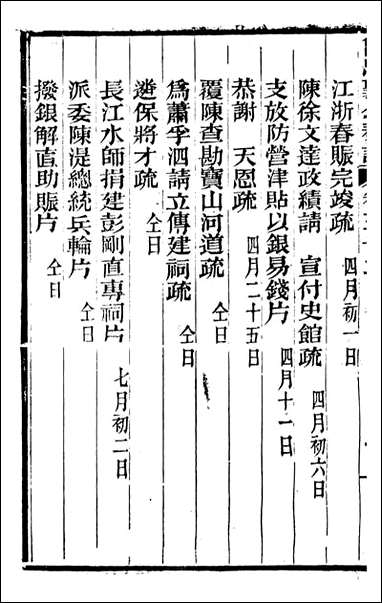 江浙春賑完竣疏 四月初一日
陳徐文達政績請 宣付史館疏 四月初六日
支放防營津貼以銀易錢片 四月十一日
恭謝 天恩疏 四月二十五日
覆陳查勘寶山河道疏 仝日
爲蕭孚泗請立傳建祠疏 仝日
遴保將才疏 仝日
長江水師捐建彭剛直專祠片 七月初二日
派委陳湜總統兵輪片 仝日
撥銀解直助賑片 仝日